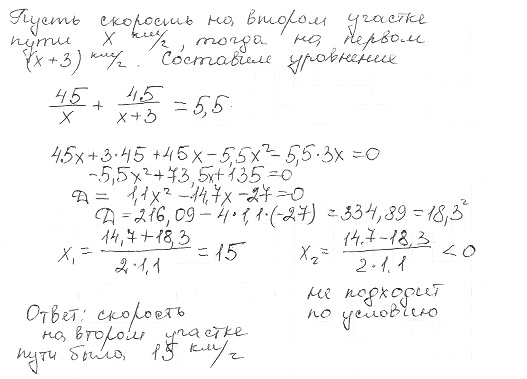 Пусть скорость на втором участке
пути x км/г, тогда на первом
(x+3) км/г. Составим уровнение
45/x + 45/(x+3) = 5,5
45x+3·45+45x-5,5x²-5,5·3x=0
-5,5x²+73,5x+135=0
Д= 1,1x²-14,7x-27=0
Д=216,09-4·1,1·(-27)=334,89=18,3²
x₁= (14,7+18,3)/(2·1,1) =15 x₂= (14.7-18,3)/(2·1.1) <0
не подходит
по условию
Ответ: скорость
на втором участке
пути была 15 км/г